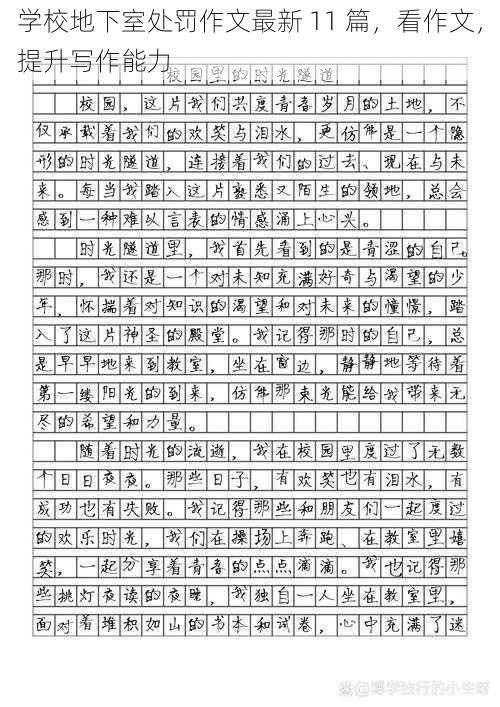 学校地下室处罚作文最新 11 篇，看作文，
提升写作能力
校园里的时光隧道
校园，这片我们共度青春岁月的土地，不
仅承载着我们的欢笑与泪水，更仿佛是一个隐
形的时光隧道，连接着我们的过去、现在与未
来。每当我踏入这片熟悉又陌生的领地，总会
感到一种难以言表的情感涌上心头。
时光隧道里，我首先看到的是青涩的自己。
那时，我还是一个对未知充满好奇与渴望的少
年，怀揣着对知识的渴望和对未来的憧憬，踏
入了这片神圣的殿堂。我记得那时的自己，总
是早早地来到教室，坐在窗边，静静地等待着
第一缕阳光的到来，仿佛那束光能给我带来无
尽的希望和力量。
随着时光的流逝，我在校园里度过了无数
个日日夜夜。那些日子，有欢笑也有泪水，有
成功也有失败。我记得那些和朋友们一起度过
的欢乐时光，我们在操场上奔跑、在教室里嬉
笑，一起分享着青春的点点滴滴。我也记得那
些挑灯夜读的夜晚，我独自一人坐在教室里，
面对着堆积如山的书本和试卷，心中充满了迷
@博学独行的小生呀